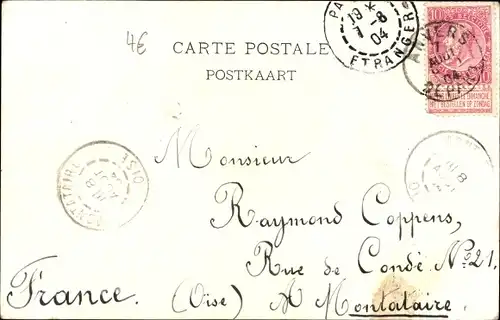 4€
PA
18 *
7 -8
04
ETRANGER
10
ANVERS
CARTE POSTALE
POSTKAART
NE PAS LIVRER LE DIMANCHE
NIET BESTELLEN OP ZONDAG
MONTATAIRE OISE
Monsieur
Raymond Coppens,
Rue de Condé N°21.
France. (Oise) à Montataire.